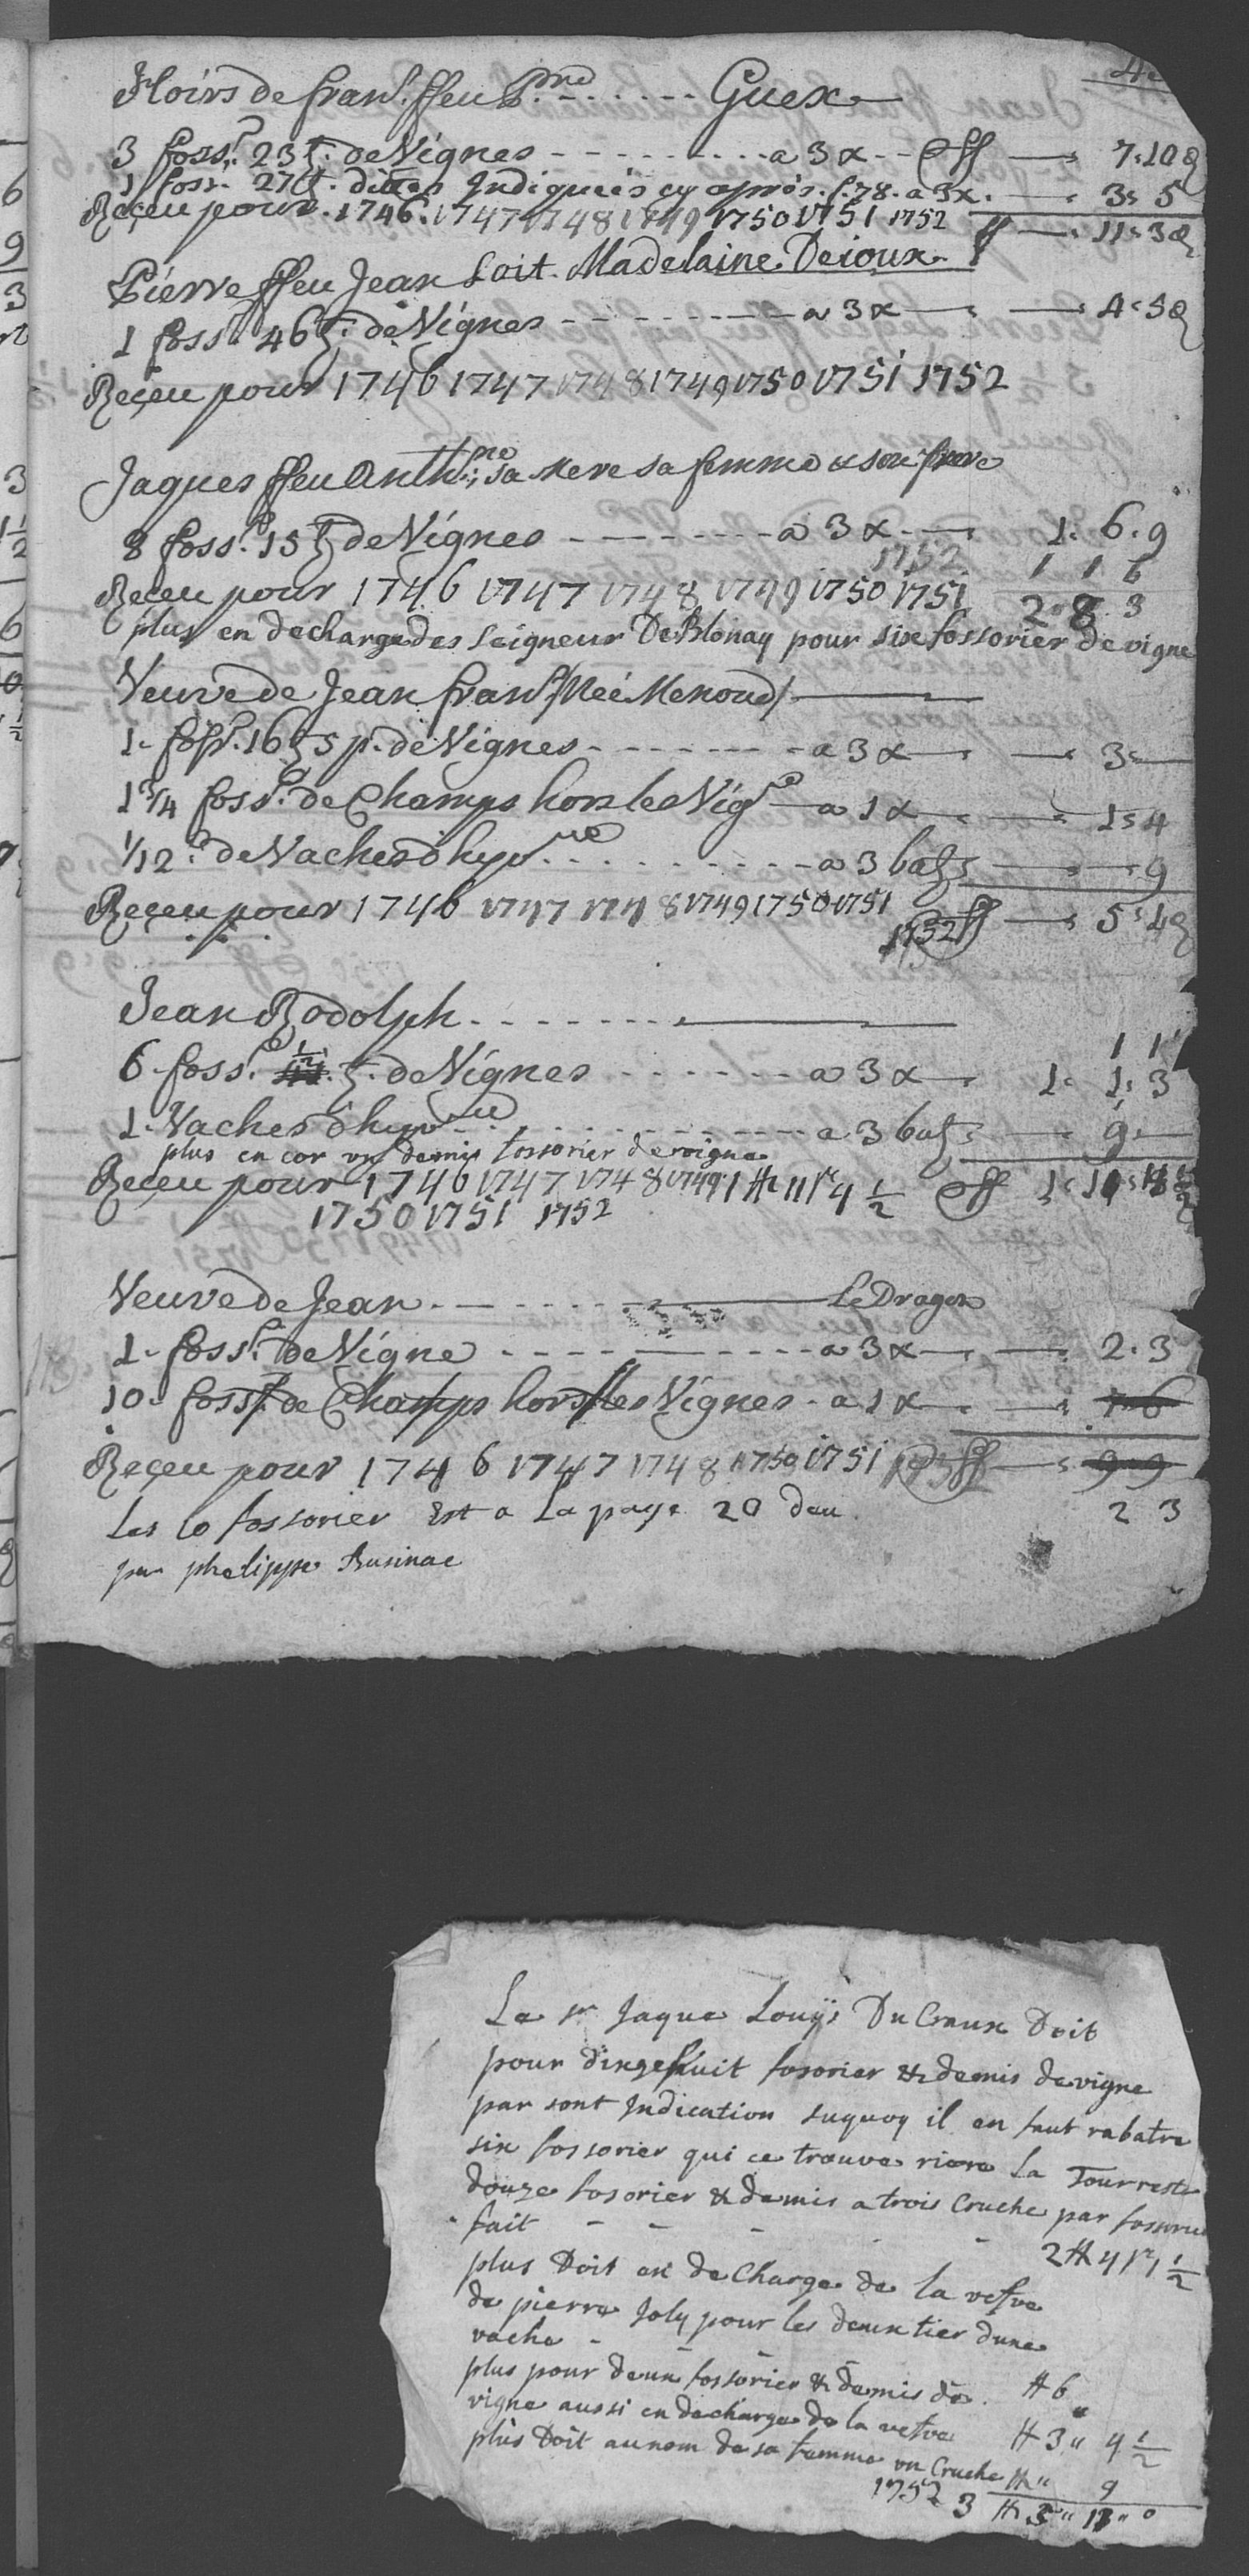 Hoirs de fran. ffeu P.rre - - - - - - Guex
3 foss.r 23 t. de Vignes - - - - - - - - - a 3 x - - Eff — 7 : 10
1 foss.r 27 t. dittes Indiquées cy après. f. 78. a 3 x. — 3 : 5
Reçeu pour . 1746 . 1747 1748 1749 1750 1751 1752 ff — 11 : 3
Pierre ffeu Jean Soit Madelaine Deioux
1 foss.r 46 t. de Vignes - - - - - - - - a 3 x — — 4 : 5
Reçeu pour 1746 1747 1748 1749 1750 1751 1752
Jaques ffeu Anth.ne ; sa Mere sa femme & son frere
8 foss.r 15 t de Vignes - - - - - - - - a 3 x — 1 . 6 . 9
1752 1 1 6
Reçeu pour 1746 1747 1748 1749 1750 1751 2 " 8 . 3
plus en decharge des Seigneur De Blonay pour six fossorier de vigne
Veuve de Jean fran. /Née Menoud/
1 - foss.r 16 t 5 p. de Vignes - - - - - - - a 3 x — — 3 : —
1 3/4 foss.r de Champs hors les Vig.s — a 1 x — — 1 : 4
1/12 . de Vaches d'hyv.ge - - - - - - - - - - a 3 batz — 9
Reçeu pour 1746 1747 1748 1749 1750 1751 — 5 : 4
1752 ff
Jean Rodolph - - - - - - -
1 1
6 - foss.r 1/2 t. de Vignes - - - - - - a 3 x — 1 : 1 : 3
1 - Vaches d'hyv.ge - - - - - - - - - - a 3 batz — 9 : —
plus en cor un demis fossorier de vigne
Reçeu pour 1746 1747 1748 1749 1 ₶ 11 s 4 1/2 Eff 1 : 10
1750 1751 1752
Veuve de Jean - - - - - - Le Dragon
1 - foss.r de Vigne - - - - - - - - - a 3 x — — 2 . 3
10 - foss.r de Champs hors les Vignes - a 1 x — — 7 : 6
Reçeu pour 1746 1747 1748 1750 1751 Eff — 9 : 9
Les 10 fossorier Est a La page 20 deu 2 3
par phelippe Businac
Le sr Jaque Louÿs Du Craux Doit
pour dixgehuit fosorier & demis de vigne
par sont Indication suquoy il en faut rabatre
six fossorier qui ce trouve riere La Tour reste
douze fosorier & demis a trois Cruche par fossorier
fait - - - - - 2 ₶ 4 s 1 1/2
plus Doit en de Charge de la vefve
de pierre Joly pour les deux tier dune
vache - - - ₶ 6 "
plus pour deux fossorier & demis de
vigne aussi en decharge de la vefve ₶ 3 " 4 1/2
plus Doit au nom de sa femme un Cruche ₶ " 9
1752 3 ₶ 3 " 13 " 0